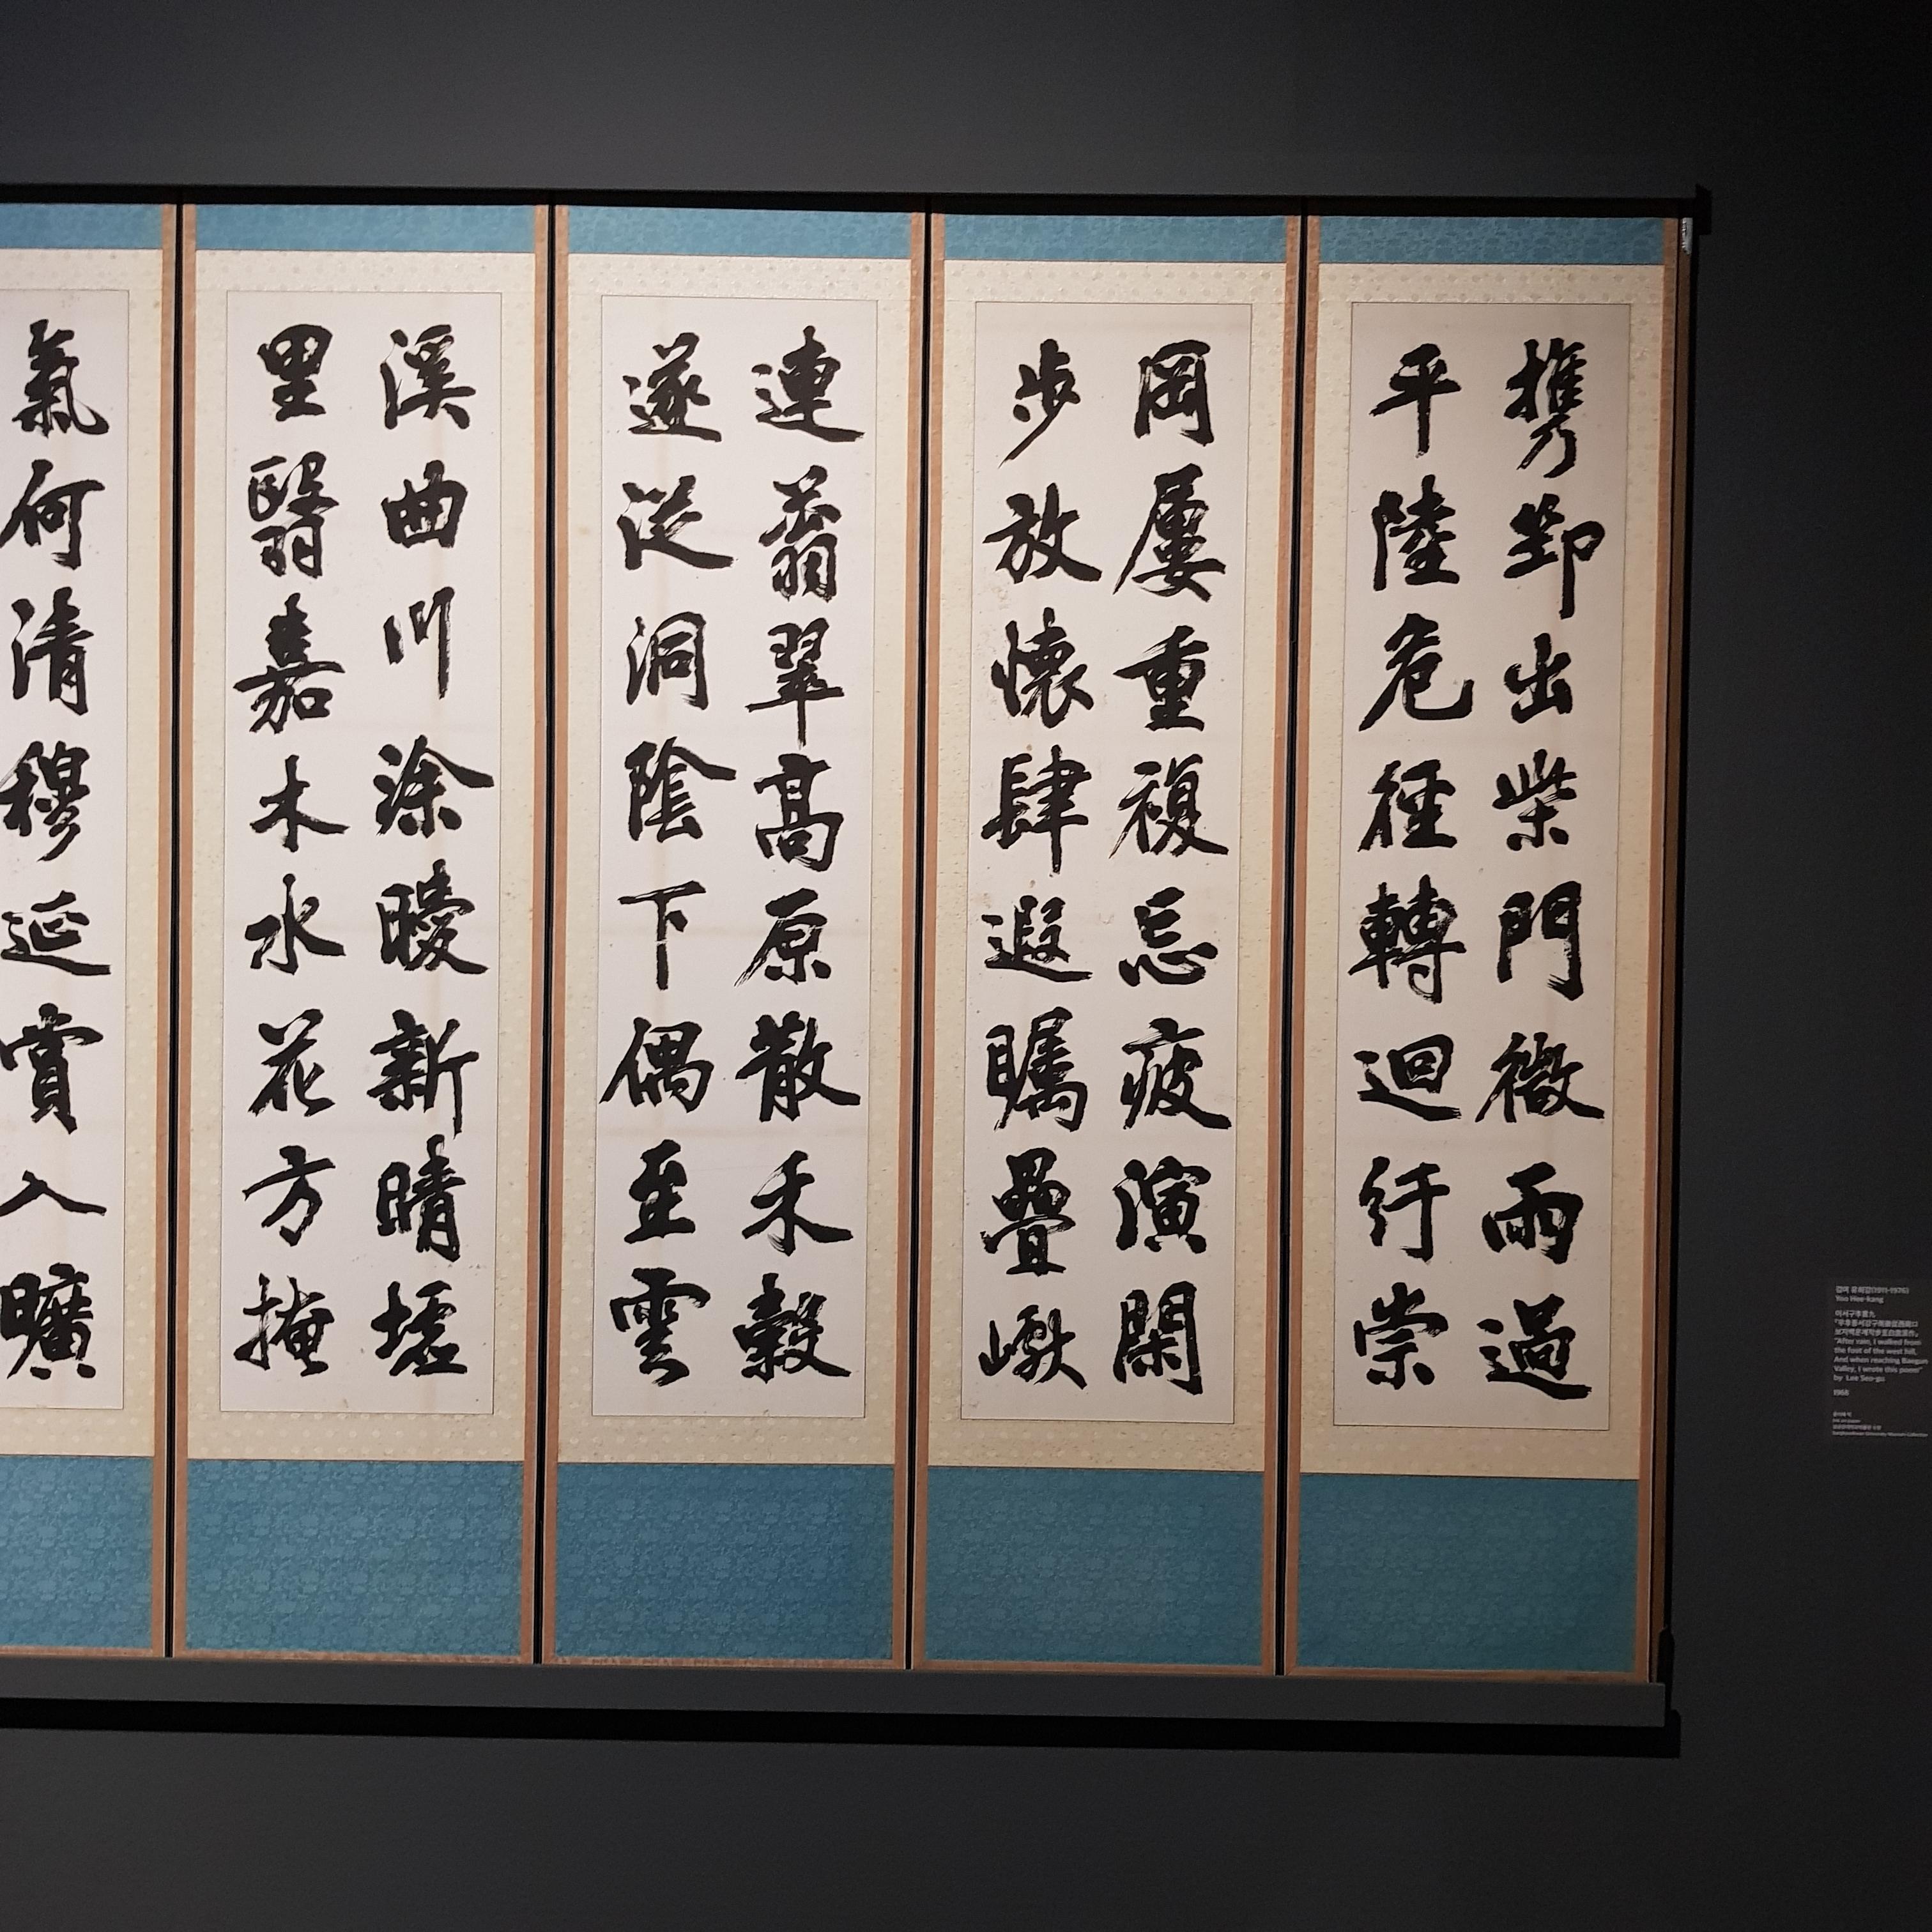 携筇出柴門微雨過
平陸危徑轉迴行崇
岡屢重複忘疲演閑
步放懷肆遐矚疊巘
連蓊翠高原散禾穀
遂從洞陰下偶至雲
溪曲川塗曖新晴墟
里翳嘉木水花方掩
氣何清穆延賞入曠
검여 유희강(1911-1976)
Yoo Hee-kang
"After rain, I walked from
the foot of the west hill,
And when reaching Baegun
Valley, I wrote this poem"
by Lee Seo-gu
1968